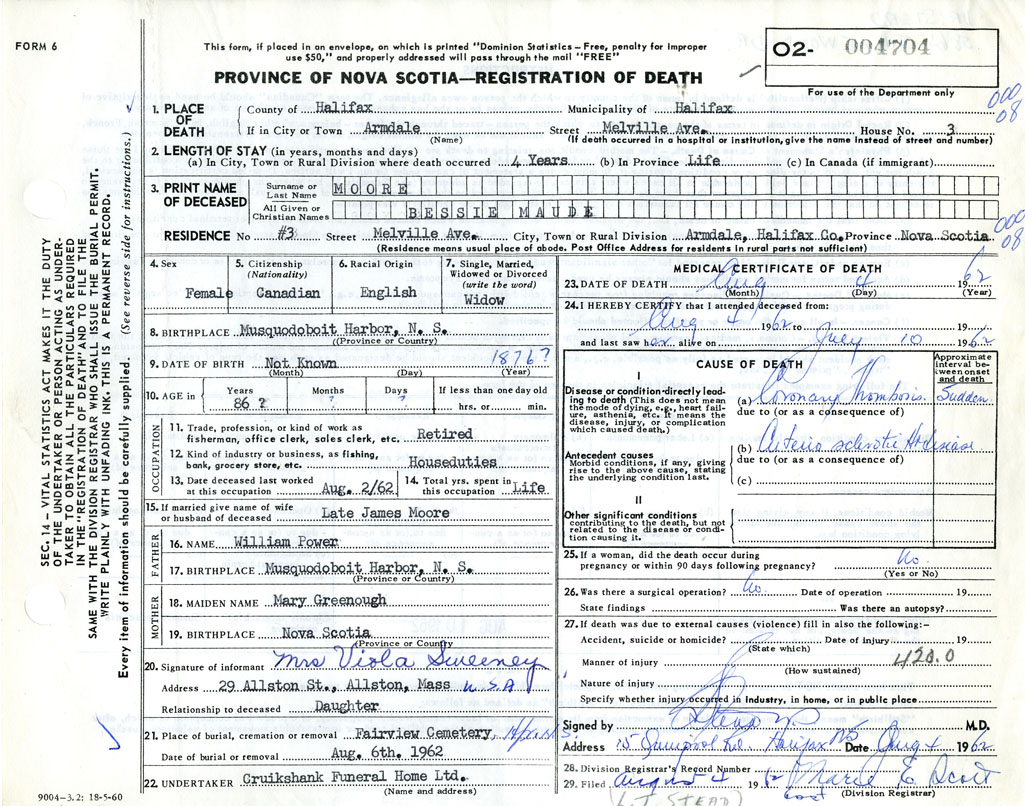 FORM 6
This form, if placed in an envelope, on which is printed "Dominion Statistics – Free, penalty for improper
use $50," and properly addressed will pass through the mail "FREE"
O2- 004704
PROVINCE OF NOVA SCOTIA—REGISTRATION OF DEATH
For use of the Department only
000
08
1. PLACE OF DEATH
County of Halifax Municipality of Halifax
If in City or Town Armdale Street Melville Ave. House No. 3
(Name) (If death occurred in a hospital or institution, give the name instead of street and number)
2. LENGTH OF STAY (in years, months and days)
(a) In City, Town or Rural Division where death occurred 4 Years (b) In Province Life (c) In Canada (if immigrant)
3. PRINT NAME OF DECEASED
Surname or Last Name MOORE
All Given or Christian Names BESSIE MAUDE
000
08
RESIDENCE No #3 Street Melville Ave. City, Town or Rural Division Armdale, Halifax Co. Province Nova Scotia
(Residence means usual place of abode. Post Office Address for residents in rural parts not sufficient)
4. Sex
Female
5. Citizenship
(Nationality)
Canadian
6. Racial Origin
English
7. Single, Married,
Widowed or Divorced
(write the word)
Widow
8. BIRTHPLACE Musquodoboit Harbor, N. S.
(Province or Country)
9. DATE OF BIRTH Not Known 1876?
(Month) (Day) (Year)
10. AGE in
Years Months Days If less than one day old
86 ? ? ? hrs. or min.
OCCUPATION
11. Trade, profession, or kind of work as
fisherman, office clerk, sales clerk, etc. Retired
12. Kind of industry or business, as fishing,
bank, grocery store, etc. Houseduties
13. Date deceased last worked
at this occupation Aug. 2/62
14. Total yrs. spent in
this occupation Life
15. If married give name of wife
or husband of deceased Late James Moore
FATHER
16. NAME William Power
17. BIRTHPLACE Musquodoboit Harbor, N. S.
(Province or Country)
MOTHER
18. MAIDEN NAME Mary Greenough
19. BIRTHPLACE Nova Scotia
(Province or Country
20. Signature of informant Mrs Viola Sweeney
Address 29 Allston St., Allston, Mass U.S.A
Relationship to deceased Daughter
21. Place of burial, cremation or removal Fairview Cemetery,
Date of burial or removal Aug. 6th. 1962
22. UNDERTAKER Cruikshank Funeral Home Ltd.
(Name and address)
9004-3.2: 18-5-60
SEC. 14 – VITAL STATISTICS ACT MAKES IT THE DUTY
OF THE UNDERTAKER OR PERSON ACTING AS UNDER-
TAKER TO OBTAIN ALL THE PARTICULARS REQUIRED
IN THE "REGISTRATION OF DEATH" AND TO FILE THE
SAME WITH THE DIVISION REGISTRAR WHO SHALL ISSUE THE BURIAL PERMIT.
WRITE PLAINLY WITH UNFADING INK. THIS IS A PERMANENT RECORD.
Every item of information should be carefully supplied. (See reverse side for instructions.)
MEDICAL CERTIFICATE OF DEATH
23. DATE OF DEATH Aug 4 1962
(Month) (Day) (Year)
24. I HEREBY CERTIFY that I attended deceased from:
Aug 4 1962 to 19
and last saw her alive on July 10 1962
CAUSE OF DEATH
Approximate
interval be-
tween onset
and death
I
Disease or condition directly lead-
ing to death (This does not mean
the mode of dying, e.g., heart fail-
ure, asthenia, etc. It means the
disease, injury, or complication
which caused death.)
(a) Coronary Thrombosis. Sudden
due to (or as a consequence of)
Antecedent causes
Morbid conditions, if any, giving
rise to the above cause, stating
the underlying condition last.
(b) Arterio sclerotic Ht disease
due to (or as a consequence of)
(c)
II
Other significant conditions
contributing to the death, but not
related to the disease or condi-
tion causing it.
25. If a woman, did the death occur during
pregnancy or within 90 days following pregnancy? No.
(Yes or No)
26. Was there a surgical operation? No. Date of operation 19
State findings Was there an autopsy?
27. If death was due to external causes (violence) fill in also the following:–
Accident, suicide or homicide? Date of injury 19
(State which)
Manner of injury 420.0
(How sustained)
Nature of injury
Specify whether injury occurred in industry, in home, or in public place
Signed by M.D.
Address Halifax NS Date Aug 4 1962
28. Division Registrar's Record Number
29. Filed August 4 19 Marie E Scott
(Division Registrar)
(L.J. STEAD)